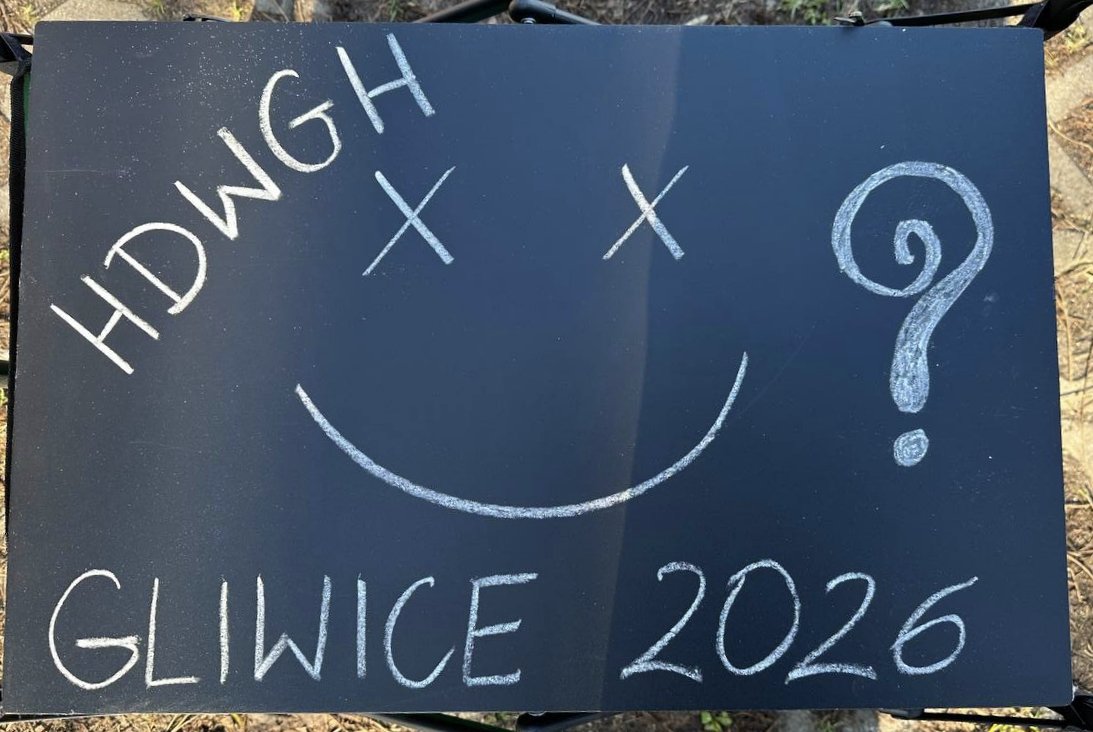 HDWGH
?
GLIWICE 2026